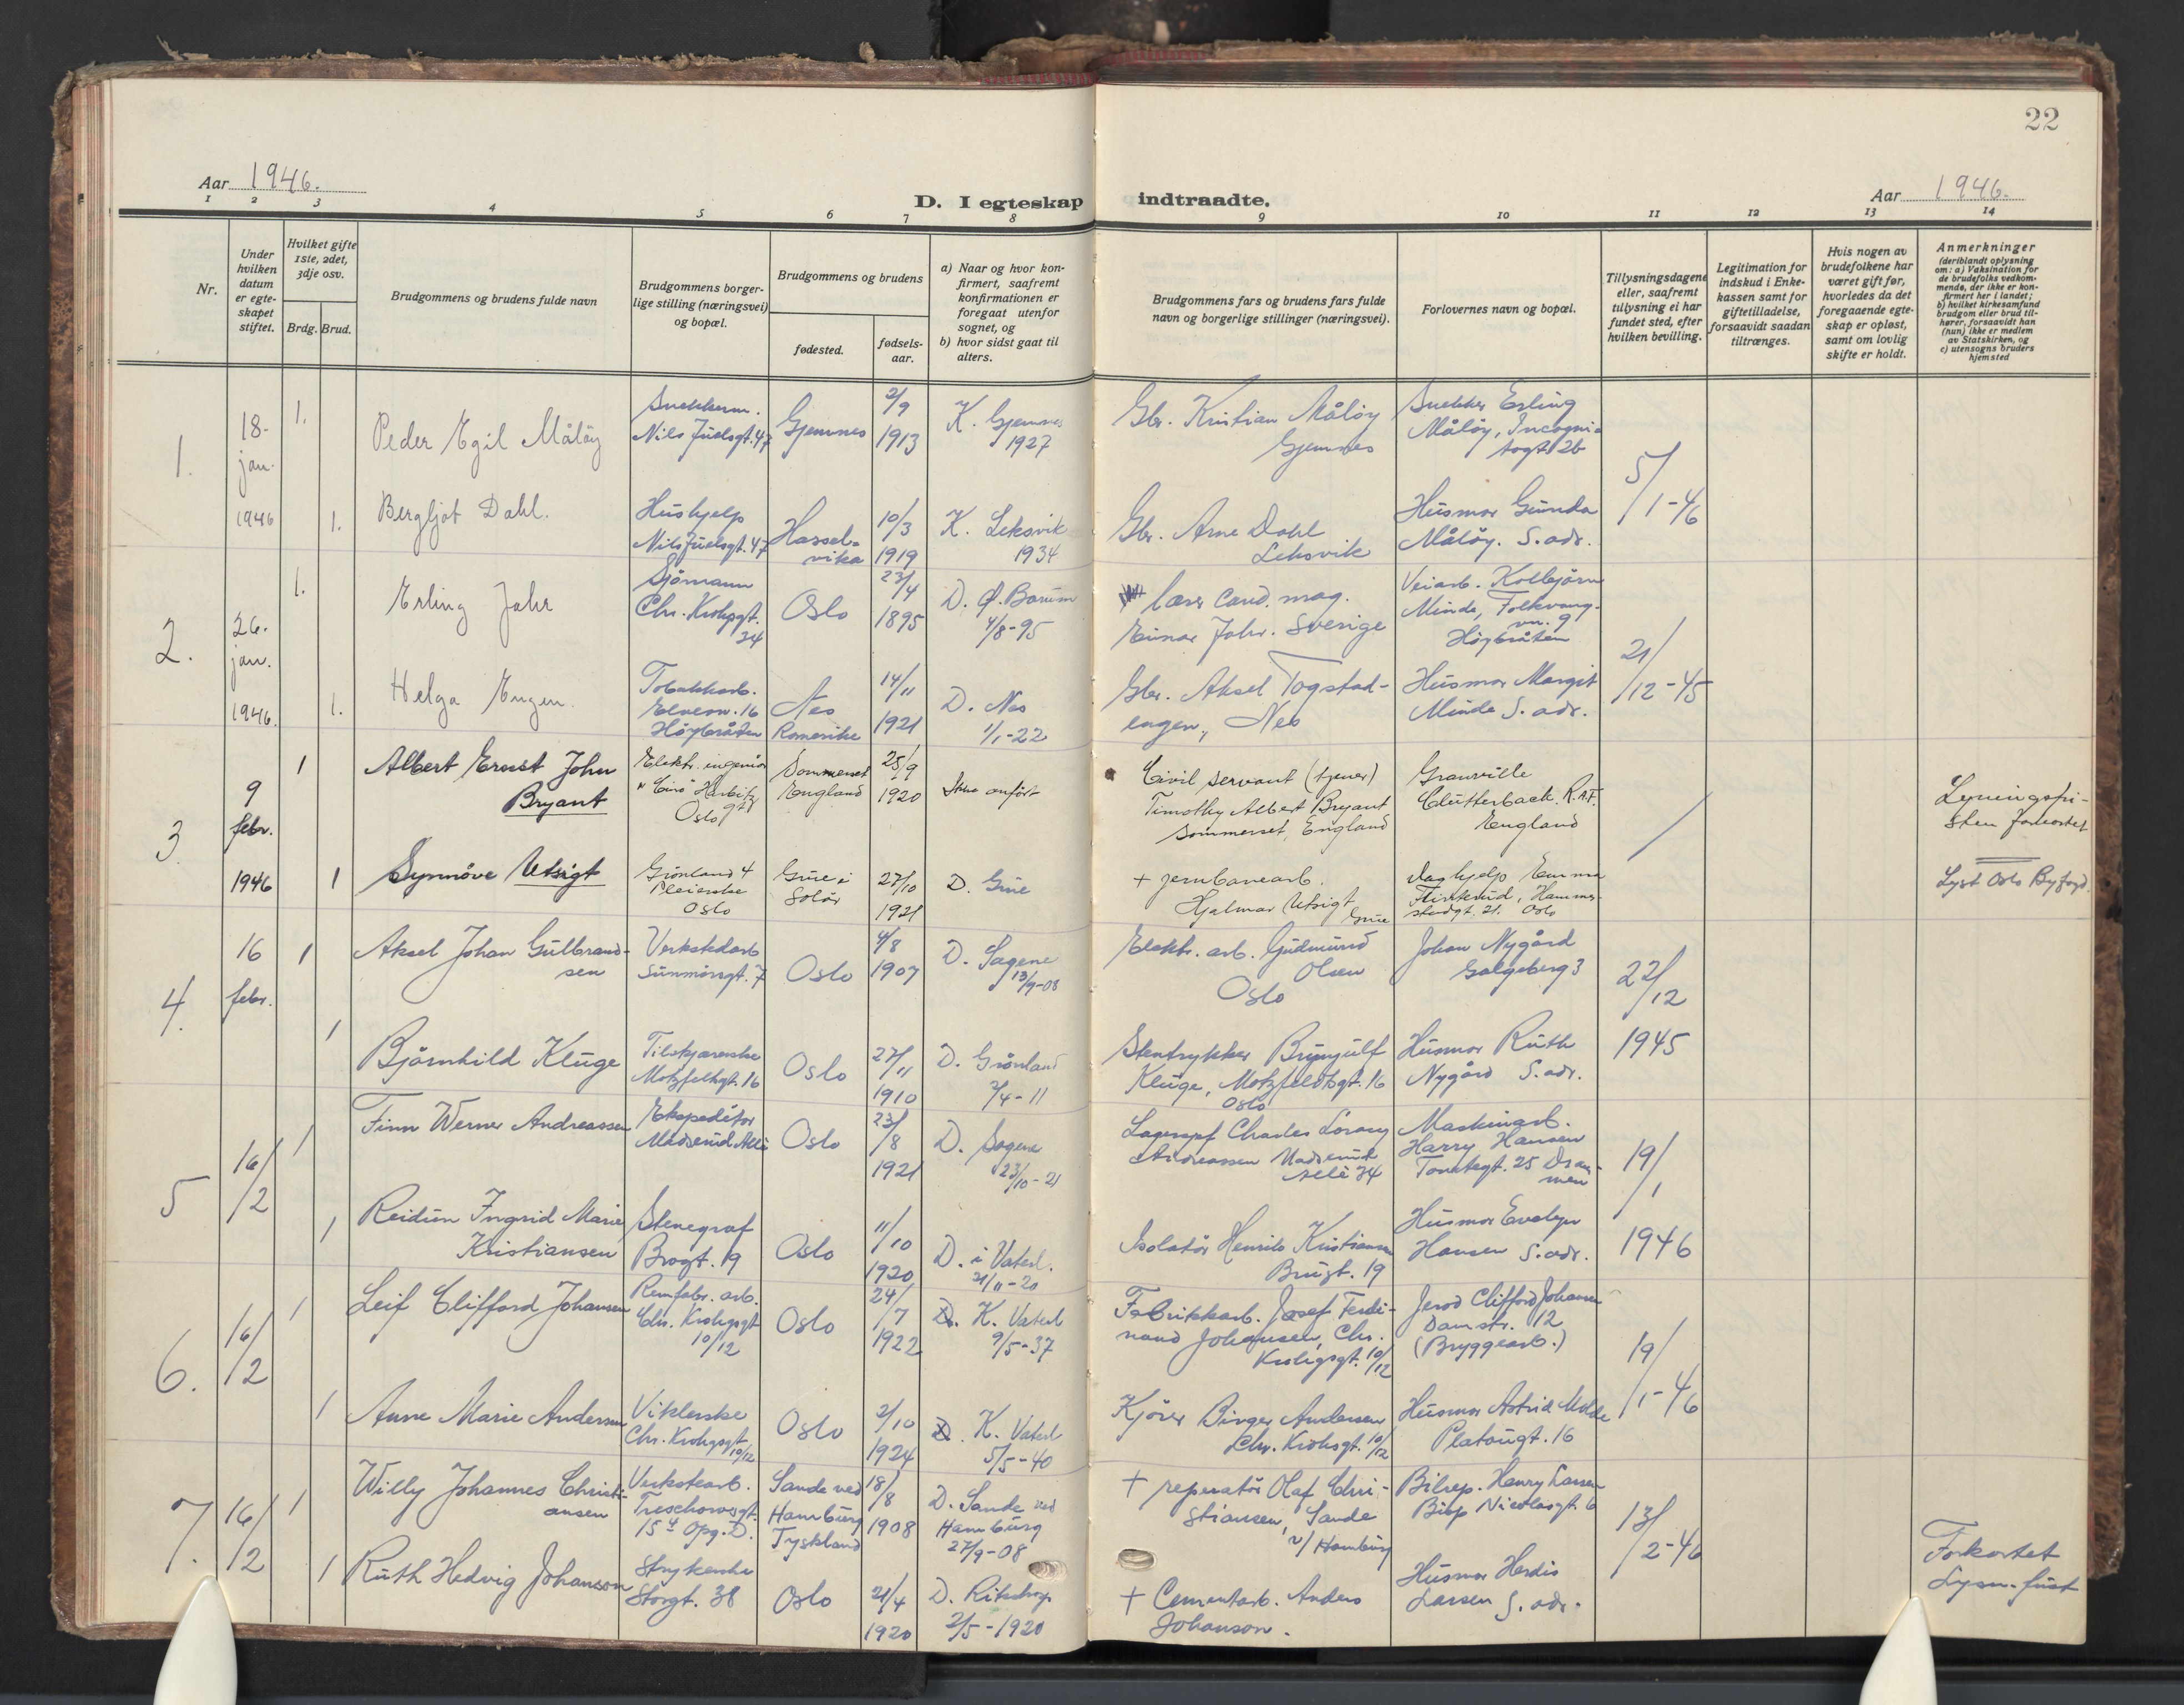 22
Aar 1946.
Aar 1946.
D. I egteskap indtraadte.
1 2 3 4 5 6 7 8 9 10 11 12 13 14
Nr.
Under hvilken datum er egteskapet stiftet.
Hvilket gifte 1ste, 2det, 3dje osv.
Brdg. Brud.
Brudgommens og brudens fulde navn
Brudgommens borgerlige stilling (næringsvei) og bopæl.
Brudgommens og brudens
fødested.
fødselsaar.
a) Naar og hvor konfirmert, saafremt konfirmationen er foregaat utenfor sognet, og
b) hvor sidst gaat til alters.
Brudgommens fars og brudens fars fulde navn og borgerlige stillinger (næringsvei).
Forlovernes navn og bopæl.
Tillysningsdagene eller, saafremt tillysning ei har fundet sted, efter hvilken bevilling.
Legitimation for indskud i Enkekassen samt for giftetilladelse, forsaavidt saadan tiltrænges.
Hvis nogen av brudefolkene har været gift før, hvorledes da det foregaaende egteskap er opløst, samt om lovlig skifte er holdt.
Anmerkninger
(deriblandt oplysning om: a) Vaksination for de brudefolks vedkommende, der ikke er konfirmert her i landet; b) hvilket kirkesamfund brudgom eller brud tilhører, forsaavidt han (hun) ikke er medlem av Statskirken, og c) utensogns bruders hjemsted
1.
18-
jan.
1946
1.
Peder Egil Måløy
Snekkerm.
Nils Juelsgt. 47
Gjemnes
2/9
1913
K. Gjemnes
1927
Gbr. Kristian Måløy
Gjemnes
Snekker Erling
Måløy, Incogni-
togt 2b
5/1-46
1.
Bergljot Dahl.
Hushjelp
Nils Juelsgt. 47
Hassel-
vika
10/3
1919
K. Leksvik
1934
Gbr. Arne Dahl
Leksvik
Husmor Gunda
Måløy. S. adr.
2.
26.
jan.
1946.
1.
Erling Jahr
Sjømann
Chr. Krohgsgt.
34
Oslo
23/4
1895
D. Ø. Bærum
4/8-95
lærer Cand. mag.
Einar Jahr. Sverige
Veiarb. Kolbjørn
Minde, Folkvang-
vn. 9
Høybråten
21/12-45
1.
Helga Engen.
Tobakkarb.
Elvesv. 16
Høybråten
Nes
Romerike
14/11
1921
D. Nes
1/1-22
Gbr. Aksel Togstad-
engen, Nes
Husmor Margit
Minde S. adr.
3
9
febr.
1946
1
Albert Ernest John
Bryant
Elektr. ingeniør
Oslo
Sommerset
England
25/9
1920
Ikke anført
Civil servant (tjener)
Timothy Albert Bryant
Sommerset, England
Granville
Clutterback. R.A.F.
England
/
Lysningsfri-
sten forkortet
Lyst Oslo Byfogd.
1
Synnöve Utsigt
Grönland 4
Pleierske
Oslo
Grue i
Solør
27/10
1921
D. Grue
+ jernbanearb.
Hjalmar Utsigt
Grue
Daghjelp Emma
Flirkerud, Hammer-
stadgt. 21. Oslo
4.
16
febr.
1
Aksel Johan Gulbrand-
sen
Verkstedarb
Sunmørsgt. 7
Oslo
4/8
1907
D. Sagene
13/9-08
Elektr. arb. Gudmund
Olsen
Oslo
Johan Nygård
Galgeberg 3
22/12
1945
1
Bjørnhild Kluge
Tilskjærerske
Motzfeldtgt. 16
Oslo
27/11
1910
D. Grønland
2/4-11
Stentrykker Brynjulf
Kluge, Motzfeldtsgt. 16
Oslo
Husmor Ruth
Nygård S. adr.
5
16/2
1
Finn Werner Andreassen
Ekspeditør
Madserud Allé
Oslo
23/8
1921
D. Sagene
23/10-21
Lagersjef Charles Lorang
Andreassen Madserud
allé 34
Maskinarb.
Harry Hansen
Tomtegt. 25 Dram-
men
19/1
1946
1
Reidun Ingrid Marie
Kristiansen
Stenograf
Brogt. 19
Oslo
11/10
1920
D. i Vaterl.
21/11-20
Isolatør Henrik Kristiansen
Brugt. 19
Husmor Evelyn
Hansen S. adr.
6.
16/2
1
Leif Clifford Johansen
Remfabr. arb.
Chr. Krohgsgt
10/12
Oslo
24/7
1922
D. K. Vaterl
9/5-37
Fabrikkarb. Josef Ferdi-
nand Johansen, Chr.
Krohgsgt. 10/12
Jerod Clifford Johansen
Damstr. 12
(Bryggearb.)
19/1-46
1
Anne Marie Andersen
Viklerske
Chr. Krohgsgt
10/12
Oslo
2/10
1924
D. K. Vaterl
5/5-40
Kjører Birger Andersen
Chr. Krohsgt. 10/12
Husmor Astrid Molde
Platougt. 16
7.
16/2
1
Willy Johannes Christi-
ansen
Verkstearb.
Treschowsgt.
15 4 Opg. D.
Sande ved
Hamburg
Tyskland
18/8
1908
D. Sande ved
Hamburg
27/9-08
+ reperatør Olaf Chri-
stiansen, Sande
v/ Hamburg
Bilrep. Henry Larsen
Bisp Nicolasgt 6
13/2-46
Forkortet
Lysn. frist
1
Ruth Hedvig Johanson
Strykerske
Storgt. 38
Oslo
21/4
1920
D.
2/5-1920
+ Cementarb. Anders
Johanson.
Husmor Herdis
Larsen S. adr.